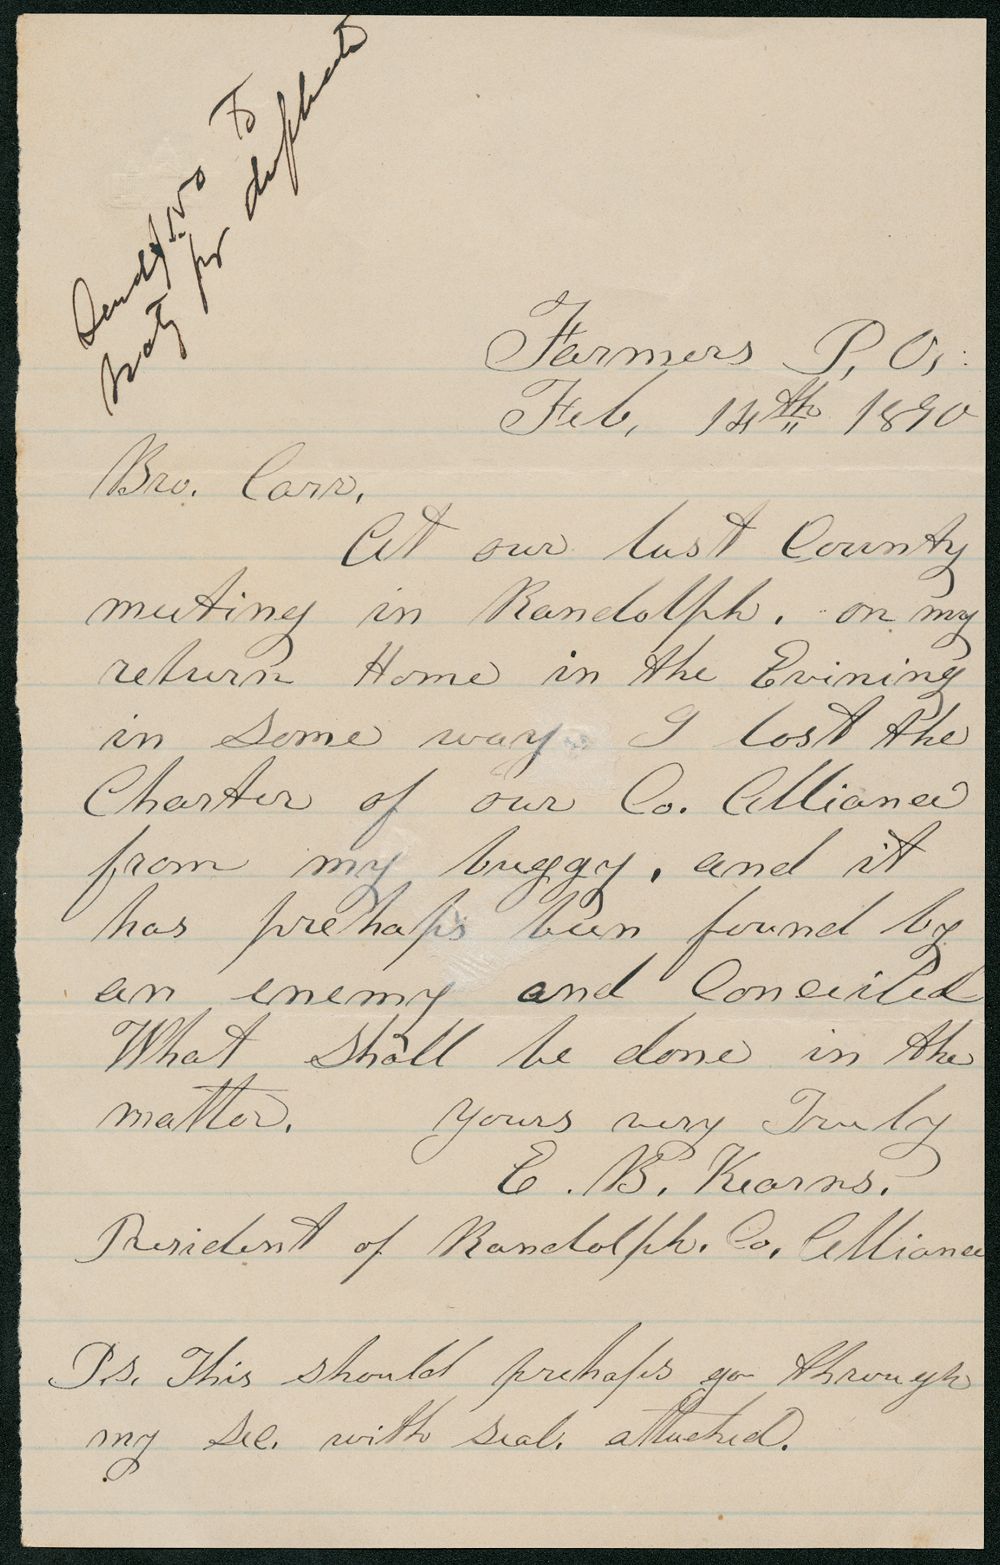 Send $1.50 to
for duplicate
Farmers P, O,
Feb, 14th 1890
Bro. Carr,
At our last County
meeting in Randolph. on my
return Home in the Evining
in some way I lost the
Charter of our Co. Alliance
from my buggy, and it
has prehaps been found by
an enemy and Conceiled
What shall be done in the
matter. Yours very Truly
E. B. Kearns.
President of Randolph. Co. Alliance
P.s. This should prehaps go through
my Sec. with seal. attached.